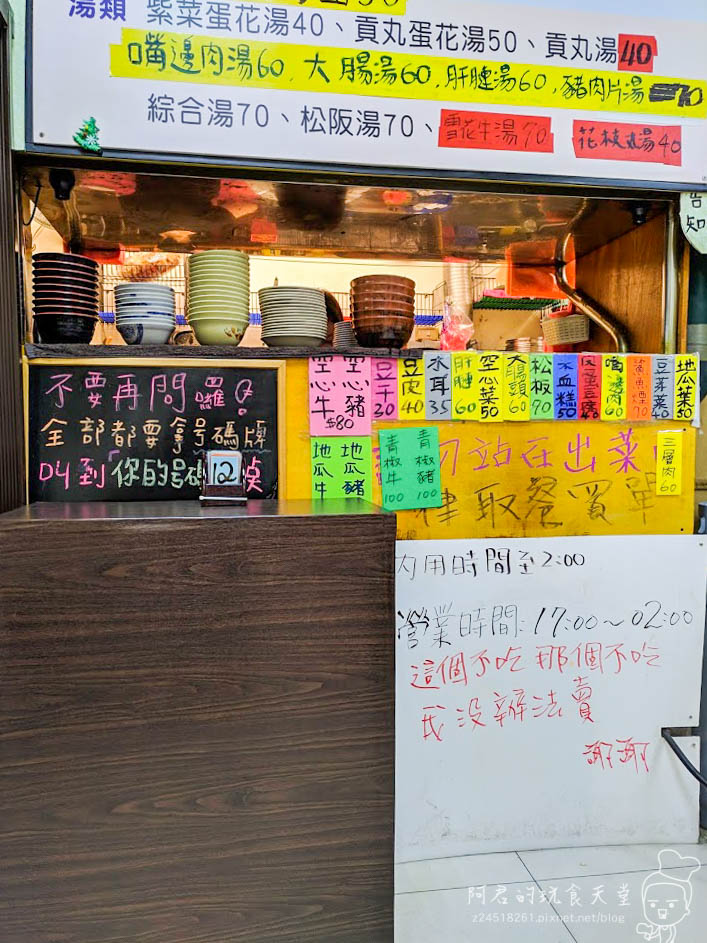 湯類 紫菜蛋花湯40、貢丸蛋花湯50、貢丸湯40
嘴邊肉湯60、大腸湯60、肝腱湯60、豬肉片湯70
綜合湯70、松阪湯70、雪花牛湯70 花枝丸湯40
告知
不要再問囉!
全部都要拿號碼牌
叫到你的號碼
12
空心牛 空心豬 $80
豆干30
豆肉40
木耳35
肝腱60
空心菜50
大腸頭60
松板70
米血糕50
皮蛋豆腐40
嘴邊肉60
鯊魚煙70
豆芽菜40
地瓜葉50
地瓜牛 地瓜豬
青椒牛100 青椒豬100
勿站在出菜
三層肉60
律取餐買單
內用時間至2:00
營業時間:17:00~02:00
這個不吃 那個不吃
我沒辦法賣
謝謝
阿君的玩食天堂
z24518261.pixnet.net/blog